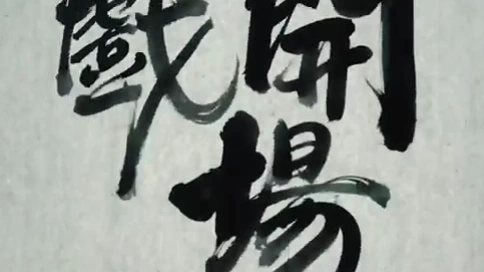 戲開
場